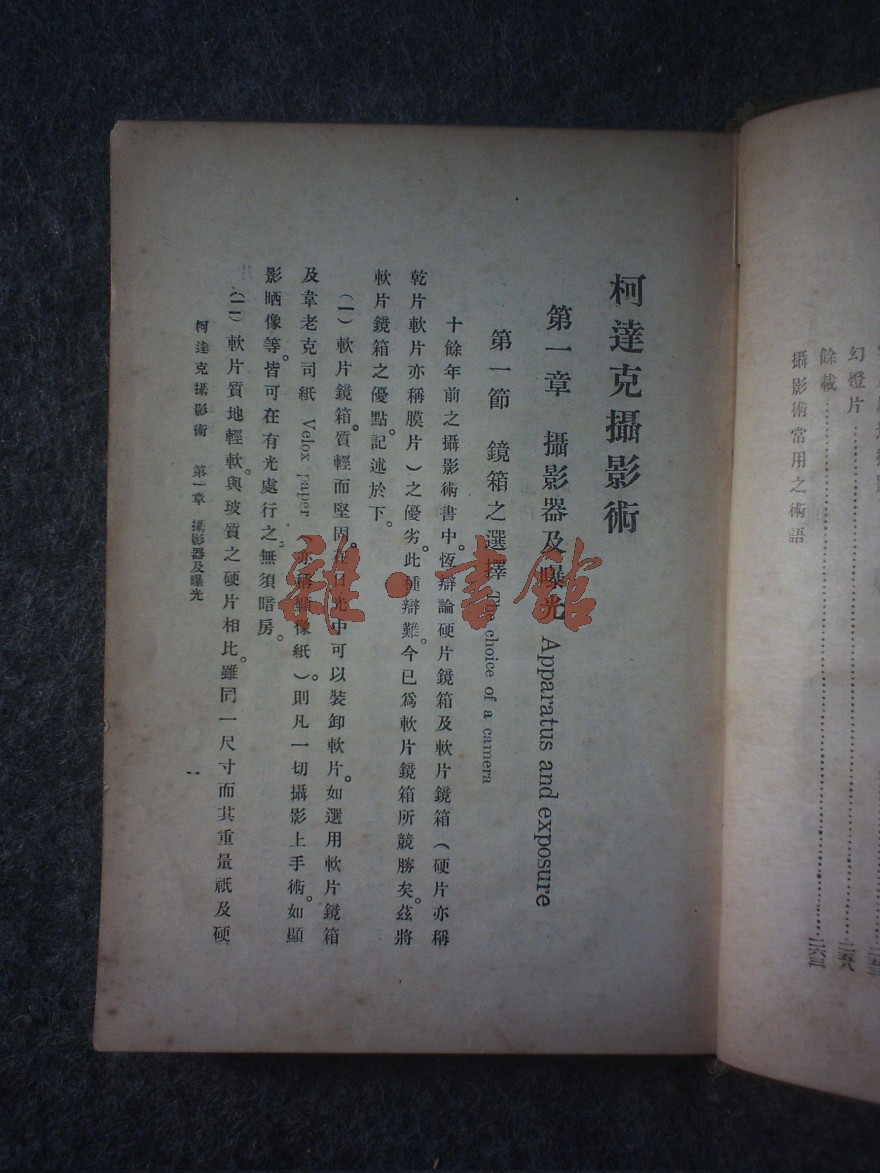 攝影術常用之術語
餘載……………………二六三
幻燈片……………………二五八
柯達克攝影術
第一章 攝影器及曝光 Apparatus and exposure
第一節 鏡箱之選擇 The choice of a camera
十餘年前之攝影術書中。恆辯論硬片鏡箱及軟片鏡箱（硬片亦稱
乾片軟片亦稱膜片）之優劣。此種辯難。今已爲軟片鏡箱所競勝矣。茲將
軟片鏡箱之優點。記述於下。
（一）軟片鏡箱。質輕而堅固。在日光中可以裝卸軟片。如選用軟片鏡箱
及韋老克司紙 Velox paper 亦稱顯像紙）。則凡一切攝影上手術。如顯
影晒像等。皆可在有光處行之。無須暗房。
（二）軟片質地輕軟。與玻質之硬片相比。雖同一尺寸而其重量祇及硬
柯達克攝影術 第一章 攝影器及曝光
一
雜·書館